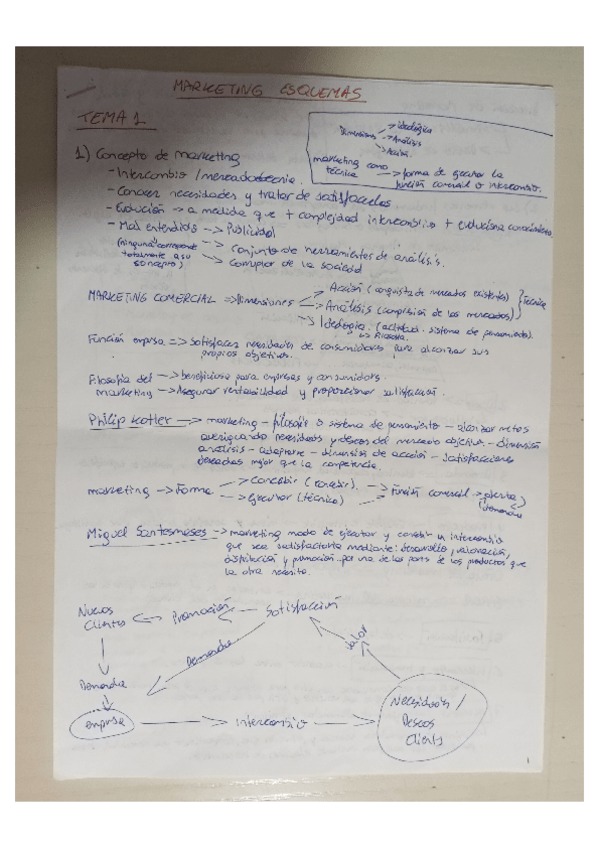 MARKETING ESQUEMAS
TEMA 1
Dimensiones → ideológica
→ Análisis
→ Acción
marketing como técnica → forma de ejecutar la función comercial o intercambio.
1) Concepto de marketing
- Intercambio / mercadotecnia.
- Conocer necesidades y tratar de satisfacerlas
- Evolución → a medida que + complejidad intercambio + evoluciona conocimiento
- Mal entendido → Publicidad
(ninguna corresponde totalmente a su concepto) → Conjunto de herramientas de análisis.
→ Corruptor de la sociedad
MARKETING COMERCIAL → Dimensiones → Acción (conquista de mercados existentes)
→ Análisis (comprensión de los mercados) } Técnica
→ Ideología. (actitud. sistema de pensamiento).
↳ Filosofía.
Función emprsa => satisfacer necesidades de consumidores para alcanzar sus
propios objetivos.
Filosofía del → beneficiosa para empresas y consumidores.
marketing → Asegurar rentabilidad y proporcionar satisfacción.
Philip Kotler → marketing - filosofía o sistema de pensamiento - alcanzar metas
averiguando necesidades y deseos del mercado objetivo. - dimensión
análisis - adaptarse - dimensión de acción - satisfacciones
deseadas mejor que la competencia.
marketing → Forma → Concebir (conocer). → Función comercial → oferta
→ ejecutar (técnica) demanda
Miguel Santesmases → marketing modo de ejecutar y concebir un intercambio
que sea satisfactorio mediante: desarrollo, valoración,
distribución y promoción por una de las partes de los productos que
la otra necesita.
Nuevos Clientes ← Promoción ← Satisfacción
Demanda
valor
Demanda
emprsa → Intercambio → Necesidades / Deseos Clients
1